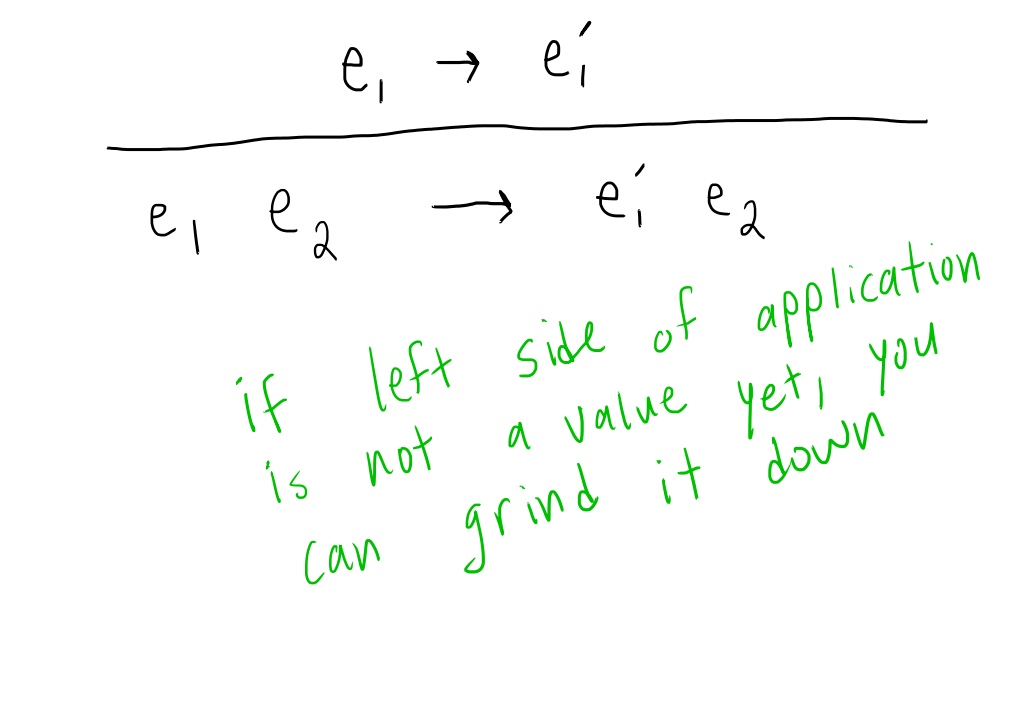 e₁ → e₁′
e₁ e₂ → e₁′ e₂
if left side of application
is not a value yet, you
can grind it down